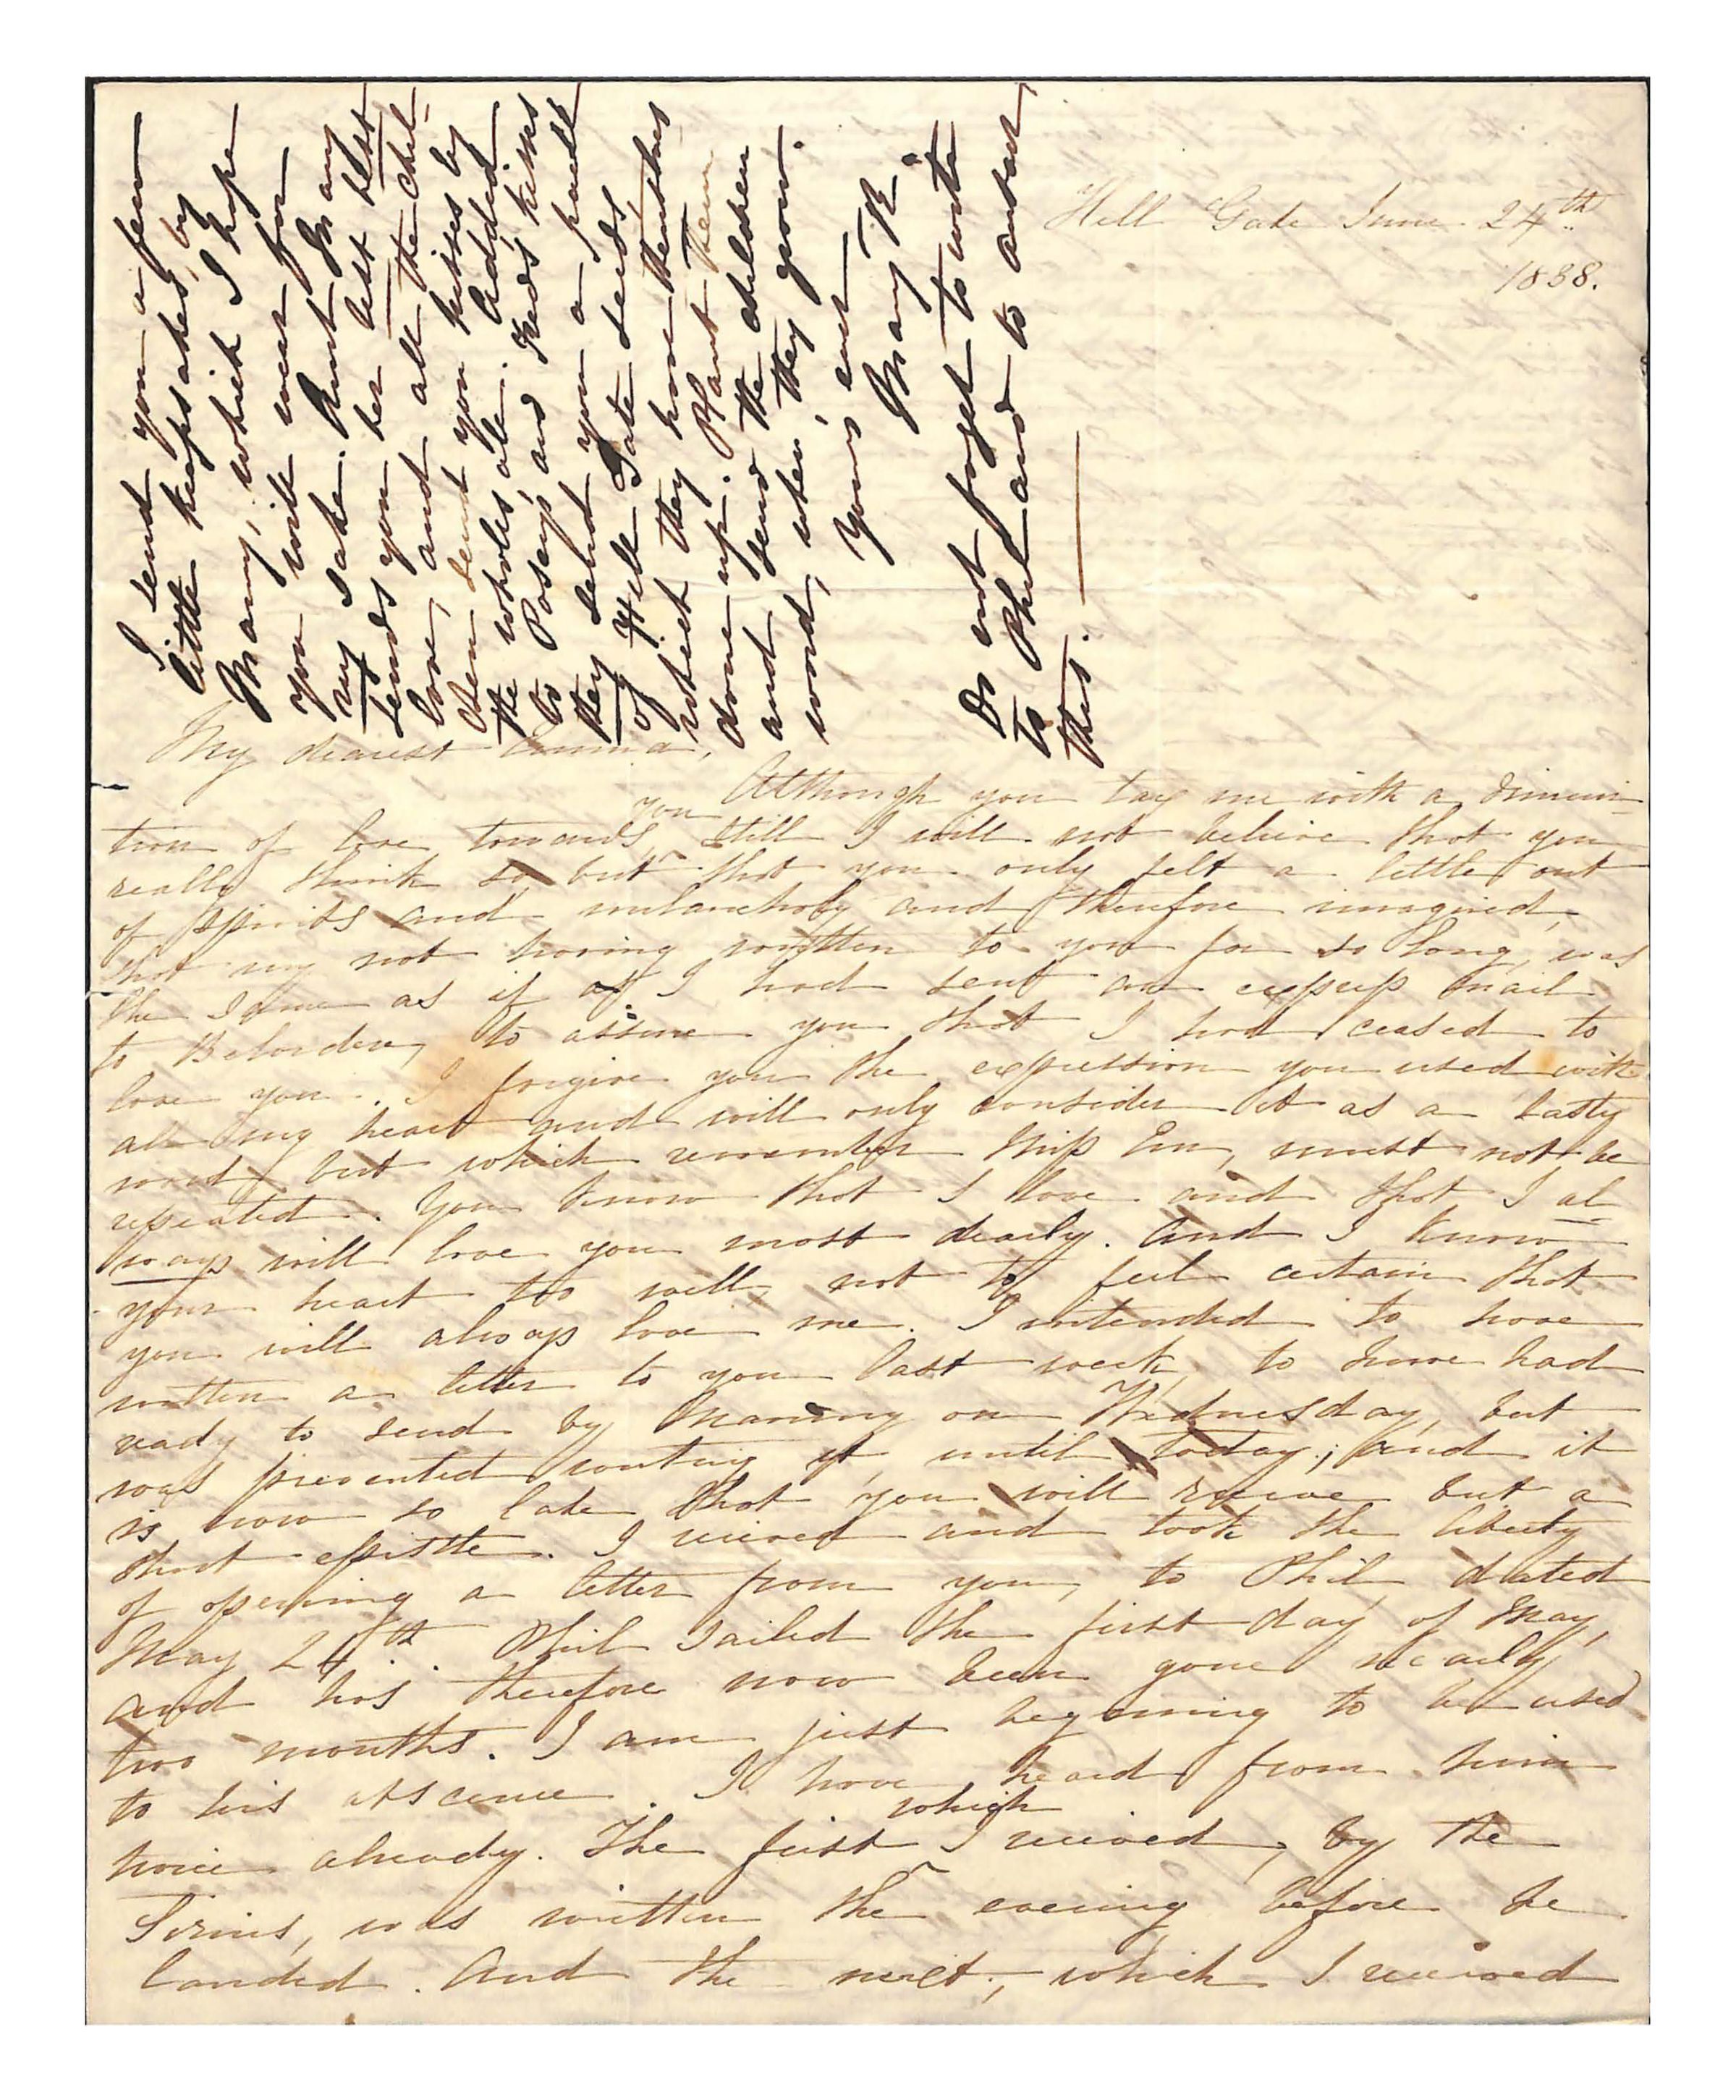 Hell Gate June 24th
1838.
My dearest Emma,
Although you tax me with a diminu-
tion of love towards you, still I will not believe that you
really think so, but that you only felt a little out
of spirits and melancholy and therefore imagined,
that my not having written to you for so long, was
the same as if I had sent an express mail
to Belvidere, to assure you that I had ceased to
love you. I forgive you the expression you used with
all my heart and will only consider it as a hasty
word, but which remember Miss Em, must not be
repeated. You know that I love and that I al-
ways will love you most dearly. And I know
your heart too well, not to feel certain that
you will always love me. I intended to have
written a letter to you last week, to have had
ready to send by Manny on Wednesday, but
was prevented writing it, until today; and it
is now so late that you will receive but a
short epistle. I received and took the liberty
of opening a letter from you, to Phil dated
May 24th. Phil sailed the first day of May,
and has therefore now been gone nearly
two months. I am just beginning to be used
to his abscence. I have heard from him
twice already. The first which I received, by the
Sirius, was written the evening before he
landed. And the next, which I received
I send you a few
little keepsakes, by
Manny, which I hope
you will wear for
my sake. Aunt Mary
sends you her best best
love, and all the chil-
dren send you kisses by
the wholesale. Added
to Posey's, and Fred's kisses
they send you a paper
of Hell Gate seeds,
which they have themselves
done up. Plant them
and send the children
word, when they grow.
Yours ever
Mary R.
Do not forget to write
to Phil and to answer
this.